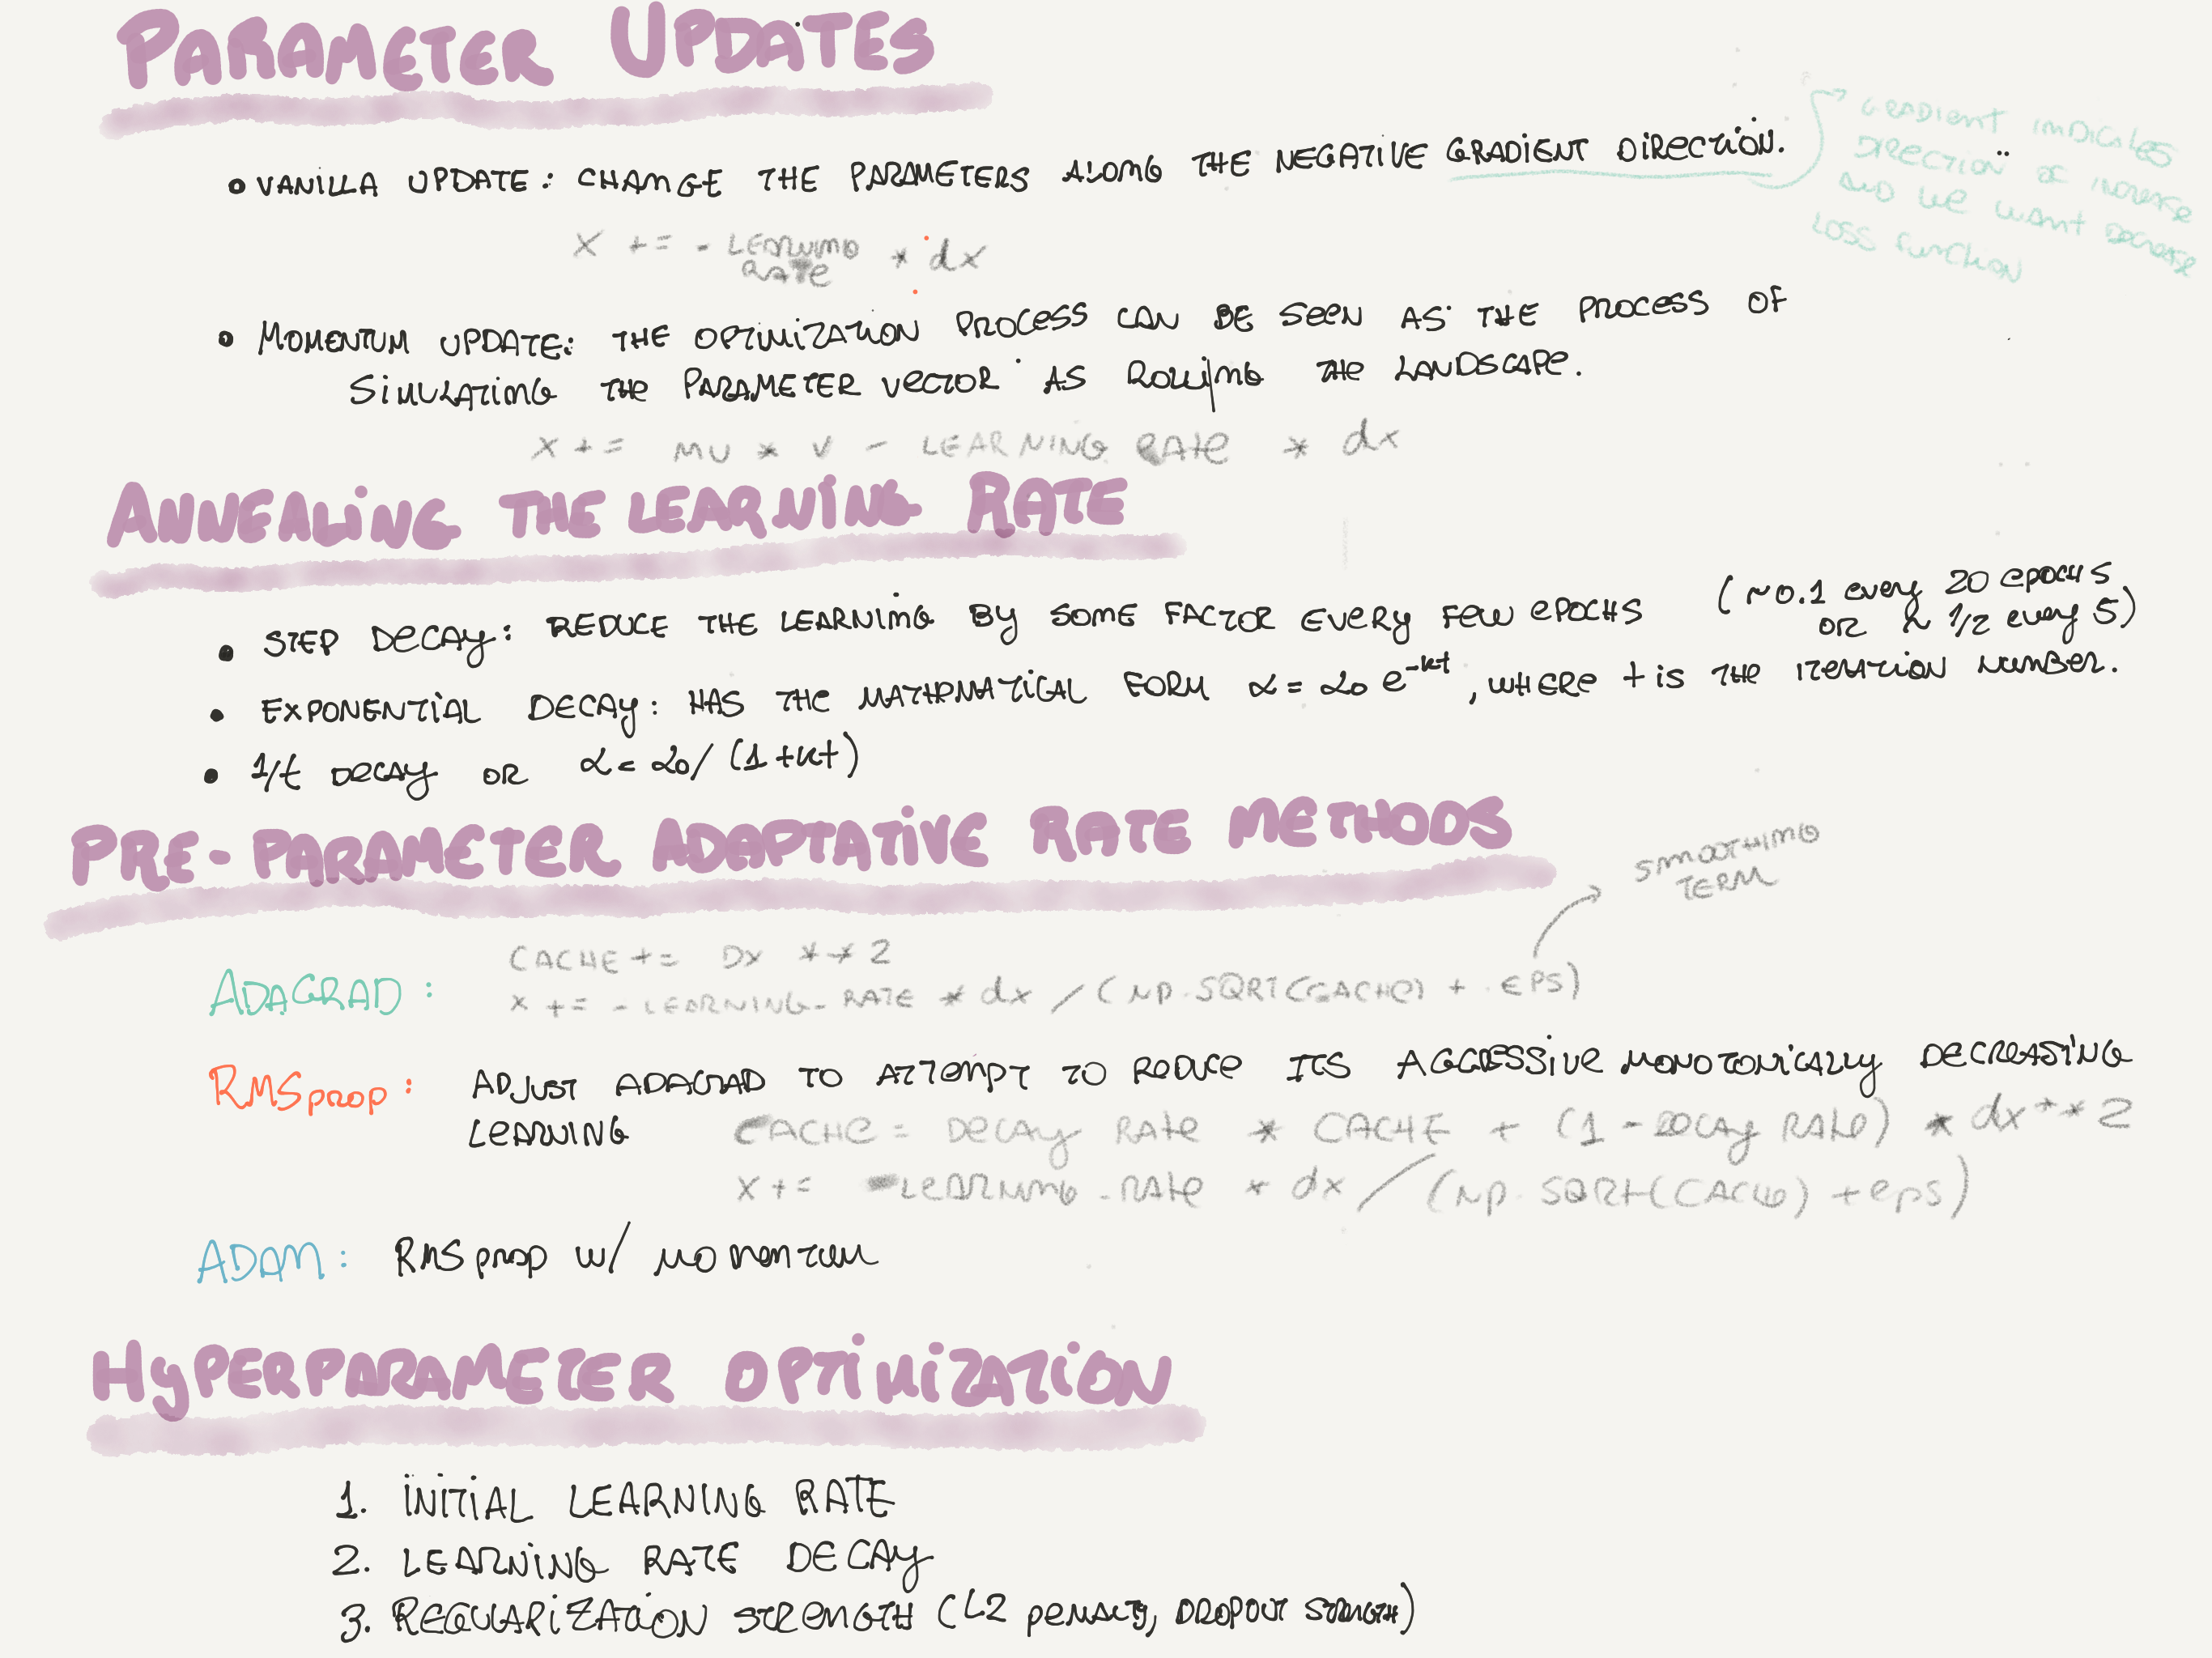 PARAMETER UPDATES
• VANILLA UPDATE: CHANGE THE PARAMETERS ALONG THE NEGATIVE GRADIENT DIRECTION.
GRADIENT INDICATES
DIRECTION OF INCREASE
AND WE WANT DECREASE
LOSS FUNCTION
X += - LEARNING RATE * dx
• MOMENTUM UPDATE: THE OPTIMIZATION PROCESS CAN BE SEEN AS THE PROCESS OF
SIMULATING THE PARAMETER VECTOR AS ROLLING THE LANDSCAPE.
X += MU * V - LEARNING RATE * dx
ANNEALING THE LEARNING RATE
• STEP DECAY: REDUCE THE LEARNING BY SOME FACTOR EVERY FEW EPOCHS (~0.1 every 20 epochs
or ~ 1/2 every 5)
• EXPONENTIAL DECAY: HAS THE MATHEMATICAL FORM α = α0 e^-kt, WHERE t is THE ITERATION NUMBER.
• 1/t DECAY OR α = α0/(1+kt)
PRE-PARAMETER ADAPTATIVE RATE METHODS
SMOOTHING
TERM
ADAGRAD: CACHE += DX **2
X += - LEARNING_RATE * dx / (NP.SQRT(CACHE) + EPS)
RMSprop: ADJUST ADAGRAD TO ATTEMPT TO REDUCE ITS AGGRESSIVE MONOTONICALLY DECREASING
LEARNING
CACHE = DECAY RATE * CACHE + (1 - DECAY RATE) * dx**2
X += -LEARNING_RATE * dx / (NP.SQRT(CACHE) + eps)
ADAM: RMSprop w/ MOMENTUM
HYPERPARAMETER OPTIMIZATION
1. INITIAL LEARNING RATE
2. LEARNING RATE DECAY
3. REGULARIZATION STRENGTH (L2 penalty, DROPOUT STRENGTH)